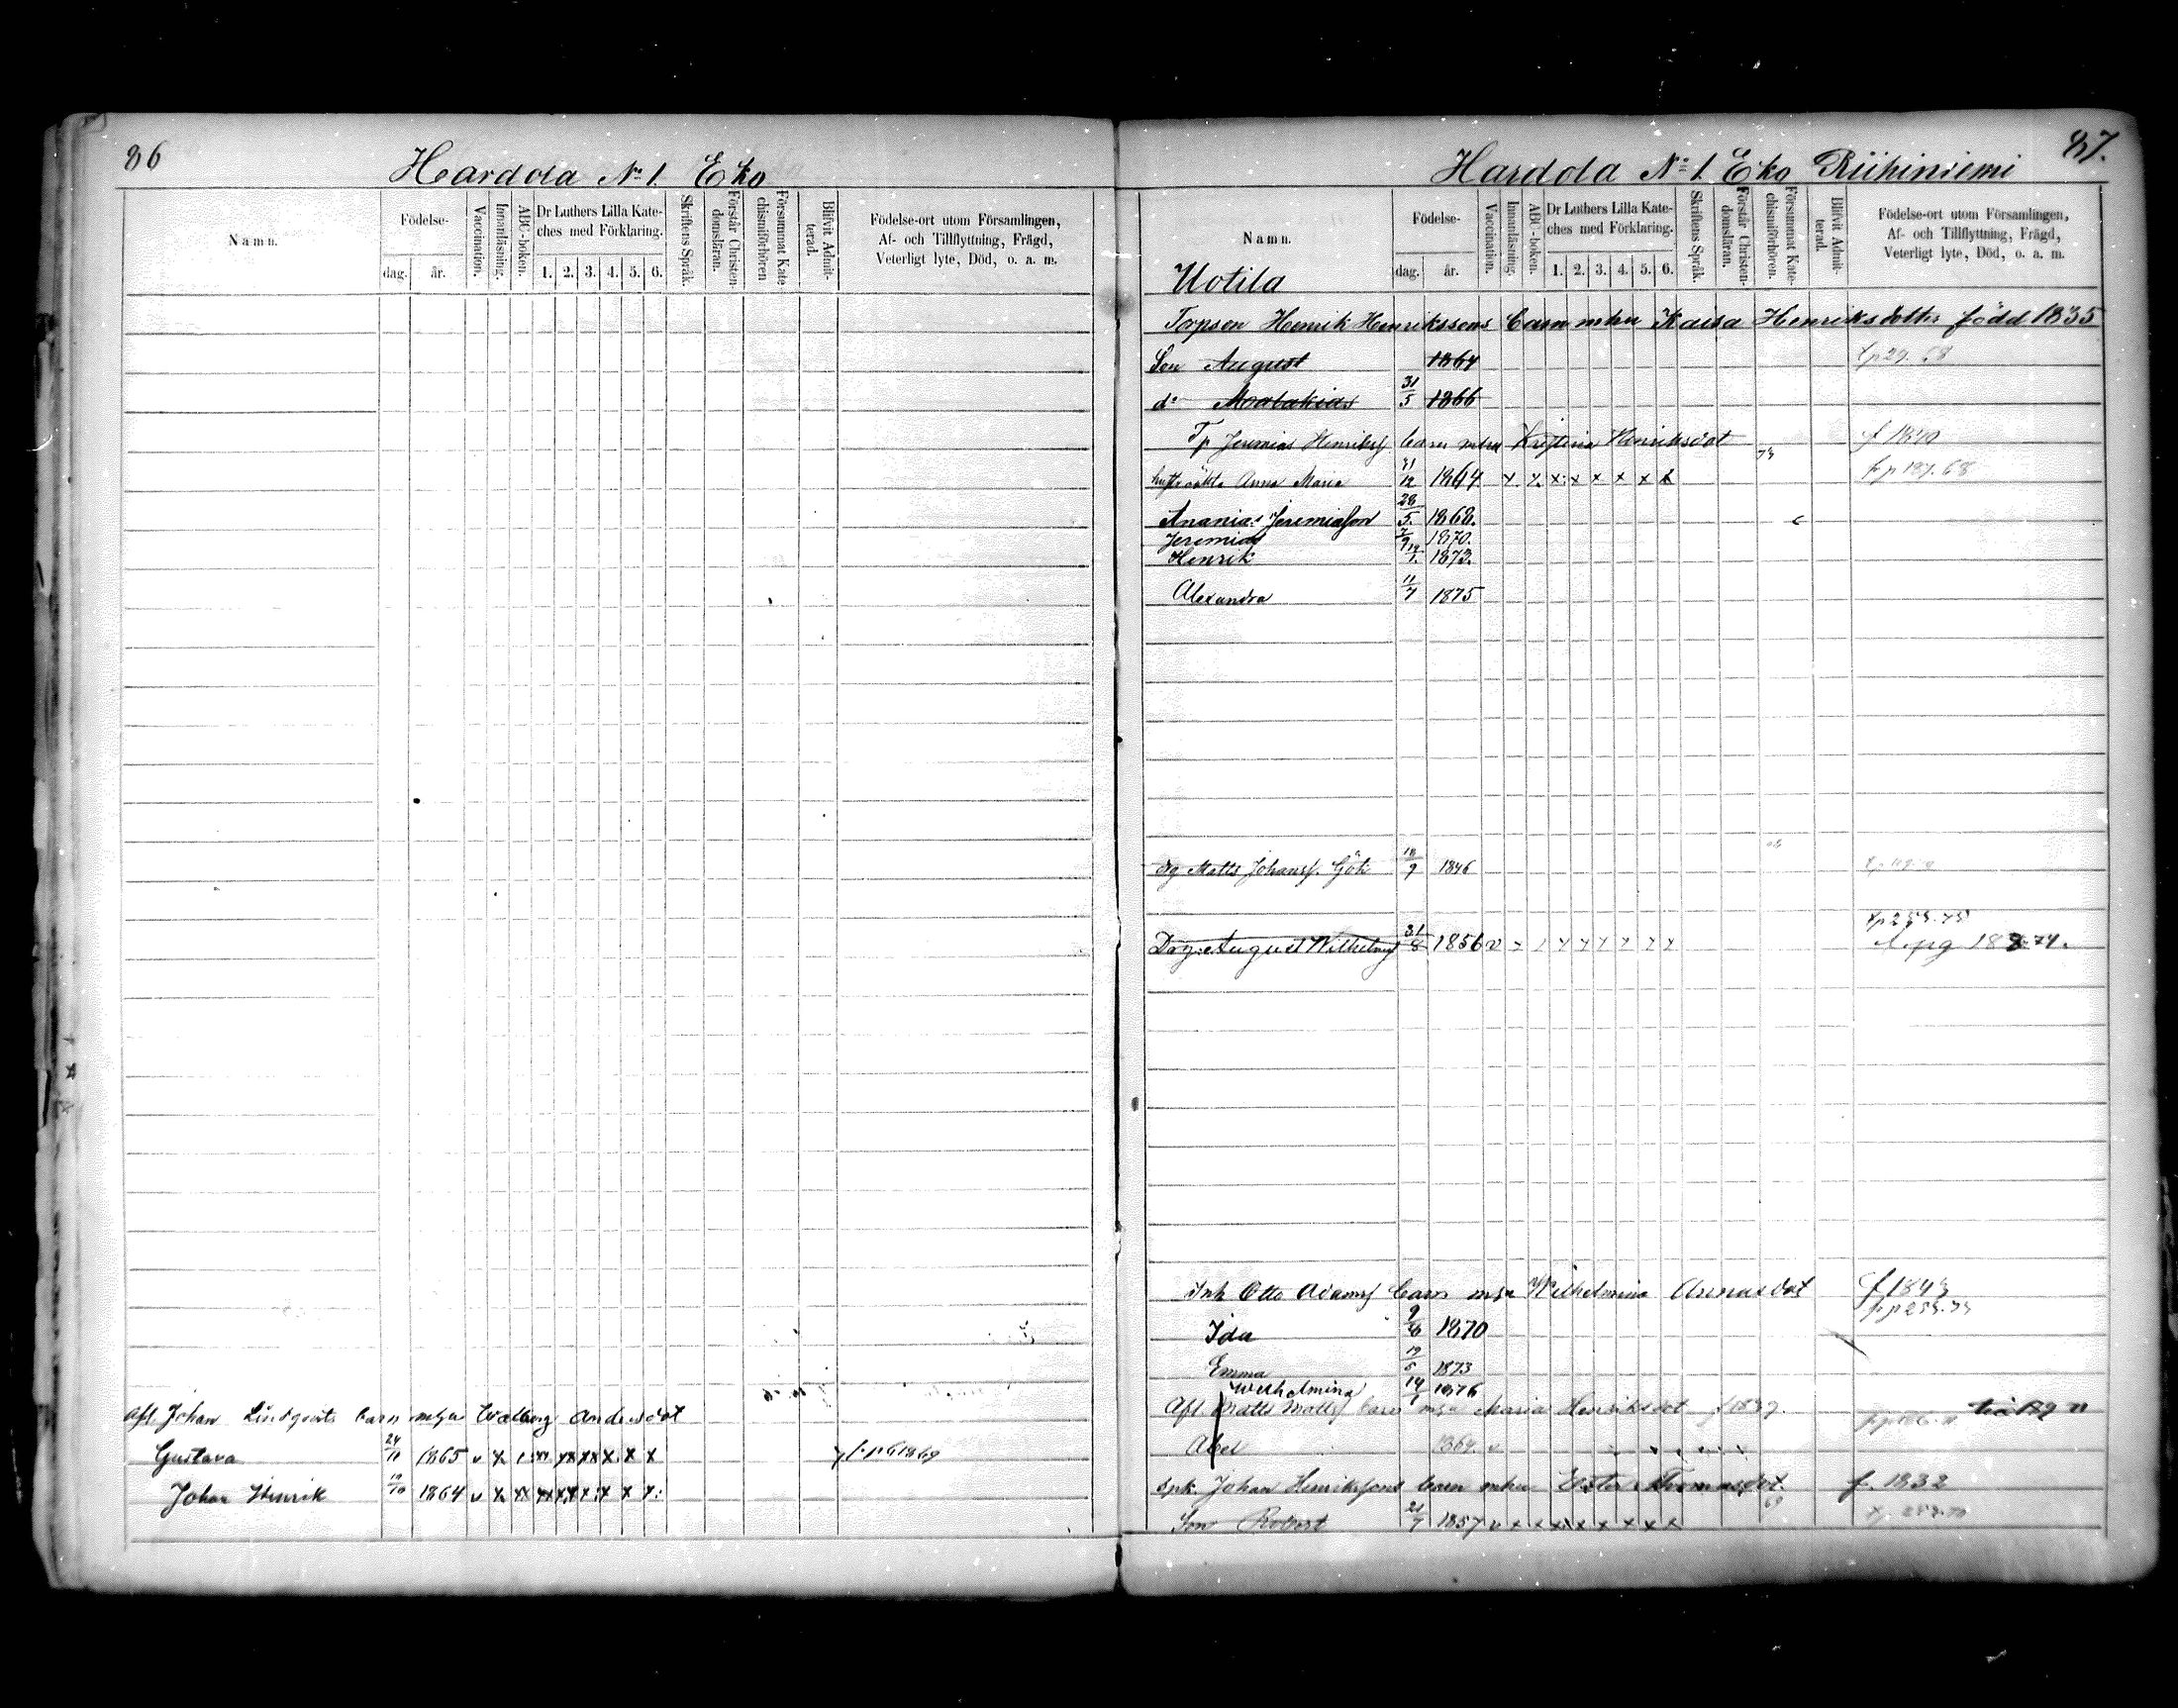 86
Hardola No 1. Eko
Namn.
Födelse-
dag.
år.
Vaccination.
Innanläsning.
ABC-boken.
Dr Luthers Lilla Kate-
ches med Förklaring.
1. 2. 3. 4. 5. 6.
Skriftens Språk.
Förstår Christen-
domsläran.
Försummat Kate-
chismiförhören
Blifvit Admit-
terad.
Födelse-ort utom Församlingen,
Af- och Tillflyttning, Frägd,
Veterligt lyte, Död, o. a. m.
Afl. Johan Lindqvists barn m hu Walborg Andersdot
Gustava 24/11 1865 v x
Johan Henrik 19/10 1864 v x
87.
Hardola No 1. Eko Riihiniemi
Namn.
Födelse-
dag.
år.
Vaccination.
Innanläsning.
ABC-boken.
Dr Luthers Lilla Kate-
ches med Förklaring.
1. 2. 3. 4. 5. 6.
Skriftens Språk.
Förstår Christen-
domsläran.
Försummat Kate-
chismiförhören.
Blifvit Admit-
terad.
Födelse-ort utom Församlingen,
Af- och Tillflyttning, Frägd,
Veterligt lyte, Död, o. a. m.
Uotila
Torpson Henrik Henrikssons barn m hu Kaisa Henriksdotter född 1835
Son August 1864
do Malakias 31/5 1866
Tp Jeremias Henrikss barn m hu Kristina Henriksdot f 1840
Anna Maria 1864 x x x x x x x x
Ananias Jeremiasson 28/5. 1868.
Jeremias 1870.
Henrik 1873.
Alexandra 11/7 1875
dg Matts Johanss. Gök 18/9 1846
Dräg: August Wilhelmss 31/8 1856 v
Inh Otto Adamss barn m hu Wilhelmina Annasdot f 1843
Ida 9/8 1870
Emma 19/5 1873
Wilhelmina 14/1 1876
Afl Matts Mattss barn m hu Maria Henriksdot
Abel 1864. v
Johan Henrikssons barn m hu f. 1832
Son Robert 21/7 1857 v x x x x x x x x